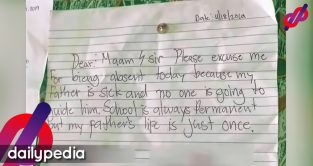 2019
Date: 11/18/2019
Dear: Maam / sir Please excuse me
for being absent today because my
Father is sick and no one is going to
guide him. School is always Permanent
but my Father's life is just once.
dailypedia